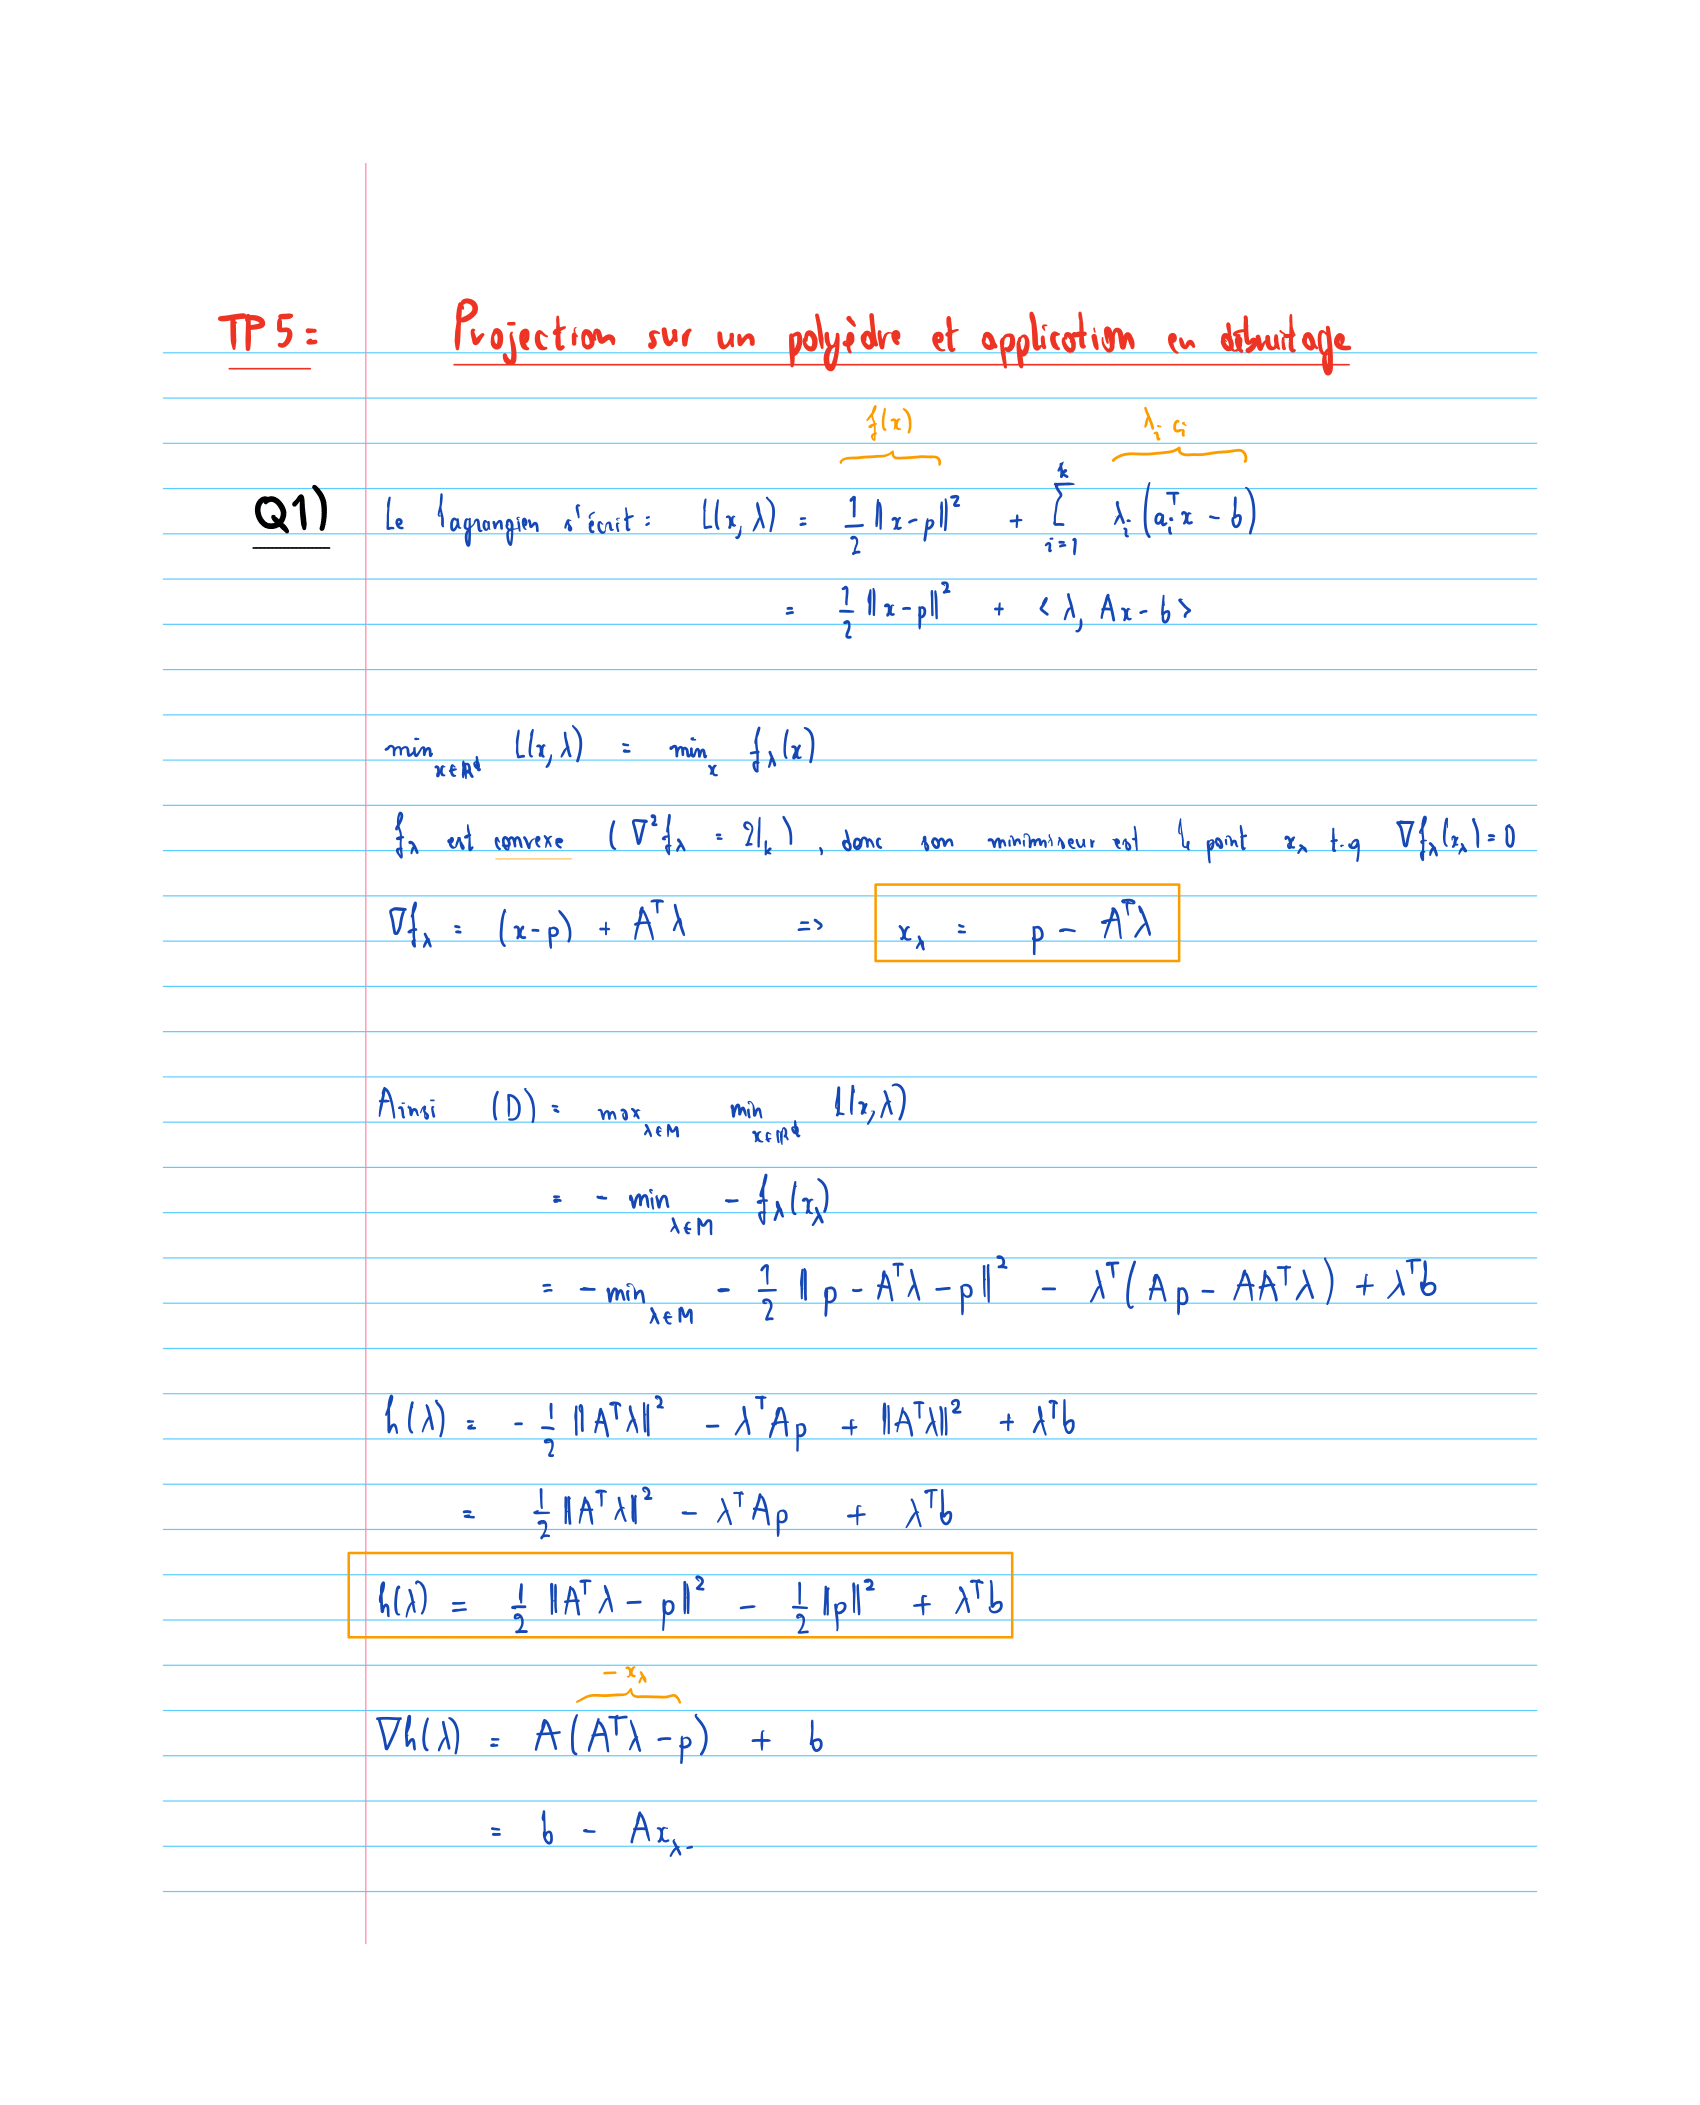 TP5: Projection sur un polyèdre et application en débruitage
f(x) λᵢ cᵢ
Q1) Le lagrangien s'écrit: L(x, λ) = 1/2 ‖x-p‖² + ∑_{i=1}^{k} λᵢ (aᵢᵀx - b)
= 1/2 ‖x-p‖² + < λ, Ax - b >
min_{x∈ℝᵈ} L(x, λ) = min_x f_λ(x)
f_λ est convexe (∇²f_λ = 2I_k), donc son minimiseur est le point x_λ t.q ∇f_λ(x_λ) = 0
∇f_λ = (x-p) + Aᵀλ => x_λ = p - Aᵀλ
Ainsi (D) = max_{λ∈M} min_{x∈ℝᵈ} L(x, λ)
= - min_{λ∈M} - f_λ(x_λ)
= - min_{λ∈M} - 1/2 ‖p - Aᵀλ - p‖² - λᵀ(Ap - AAᵀλ) + λᵀb
h(λ) = - 1/2 ‖Aᵀλ‖² - λᵀAp + ‖Aᵀλ‖² + λᵀb
= 1/2 ‖Aᵀλ‖² - λᵀAp + λᵀb
h(λ) = 1/2 ‖Aᵀλ - p‖² - 1/2 ‖p‖² + λᵀb
- x_λ
∇h(λ) = A(Aᵀλ - p) + b
= b - Ax_λ.